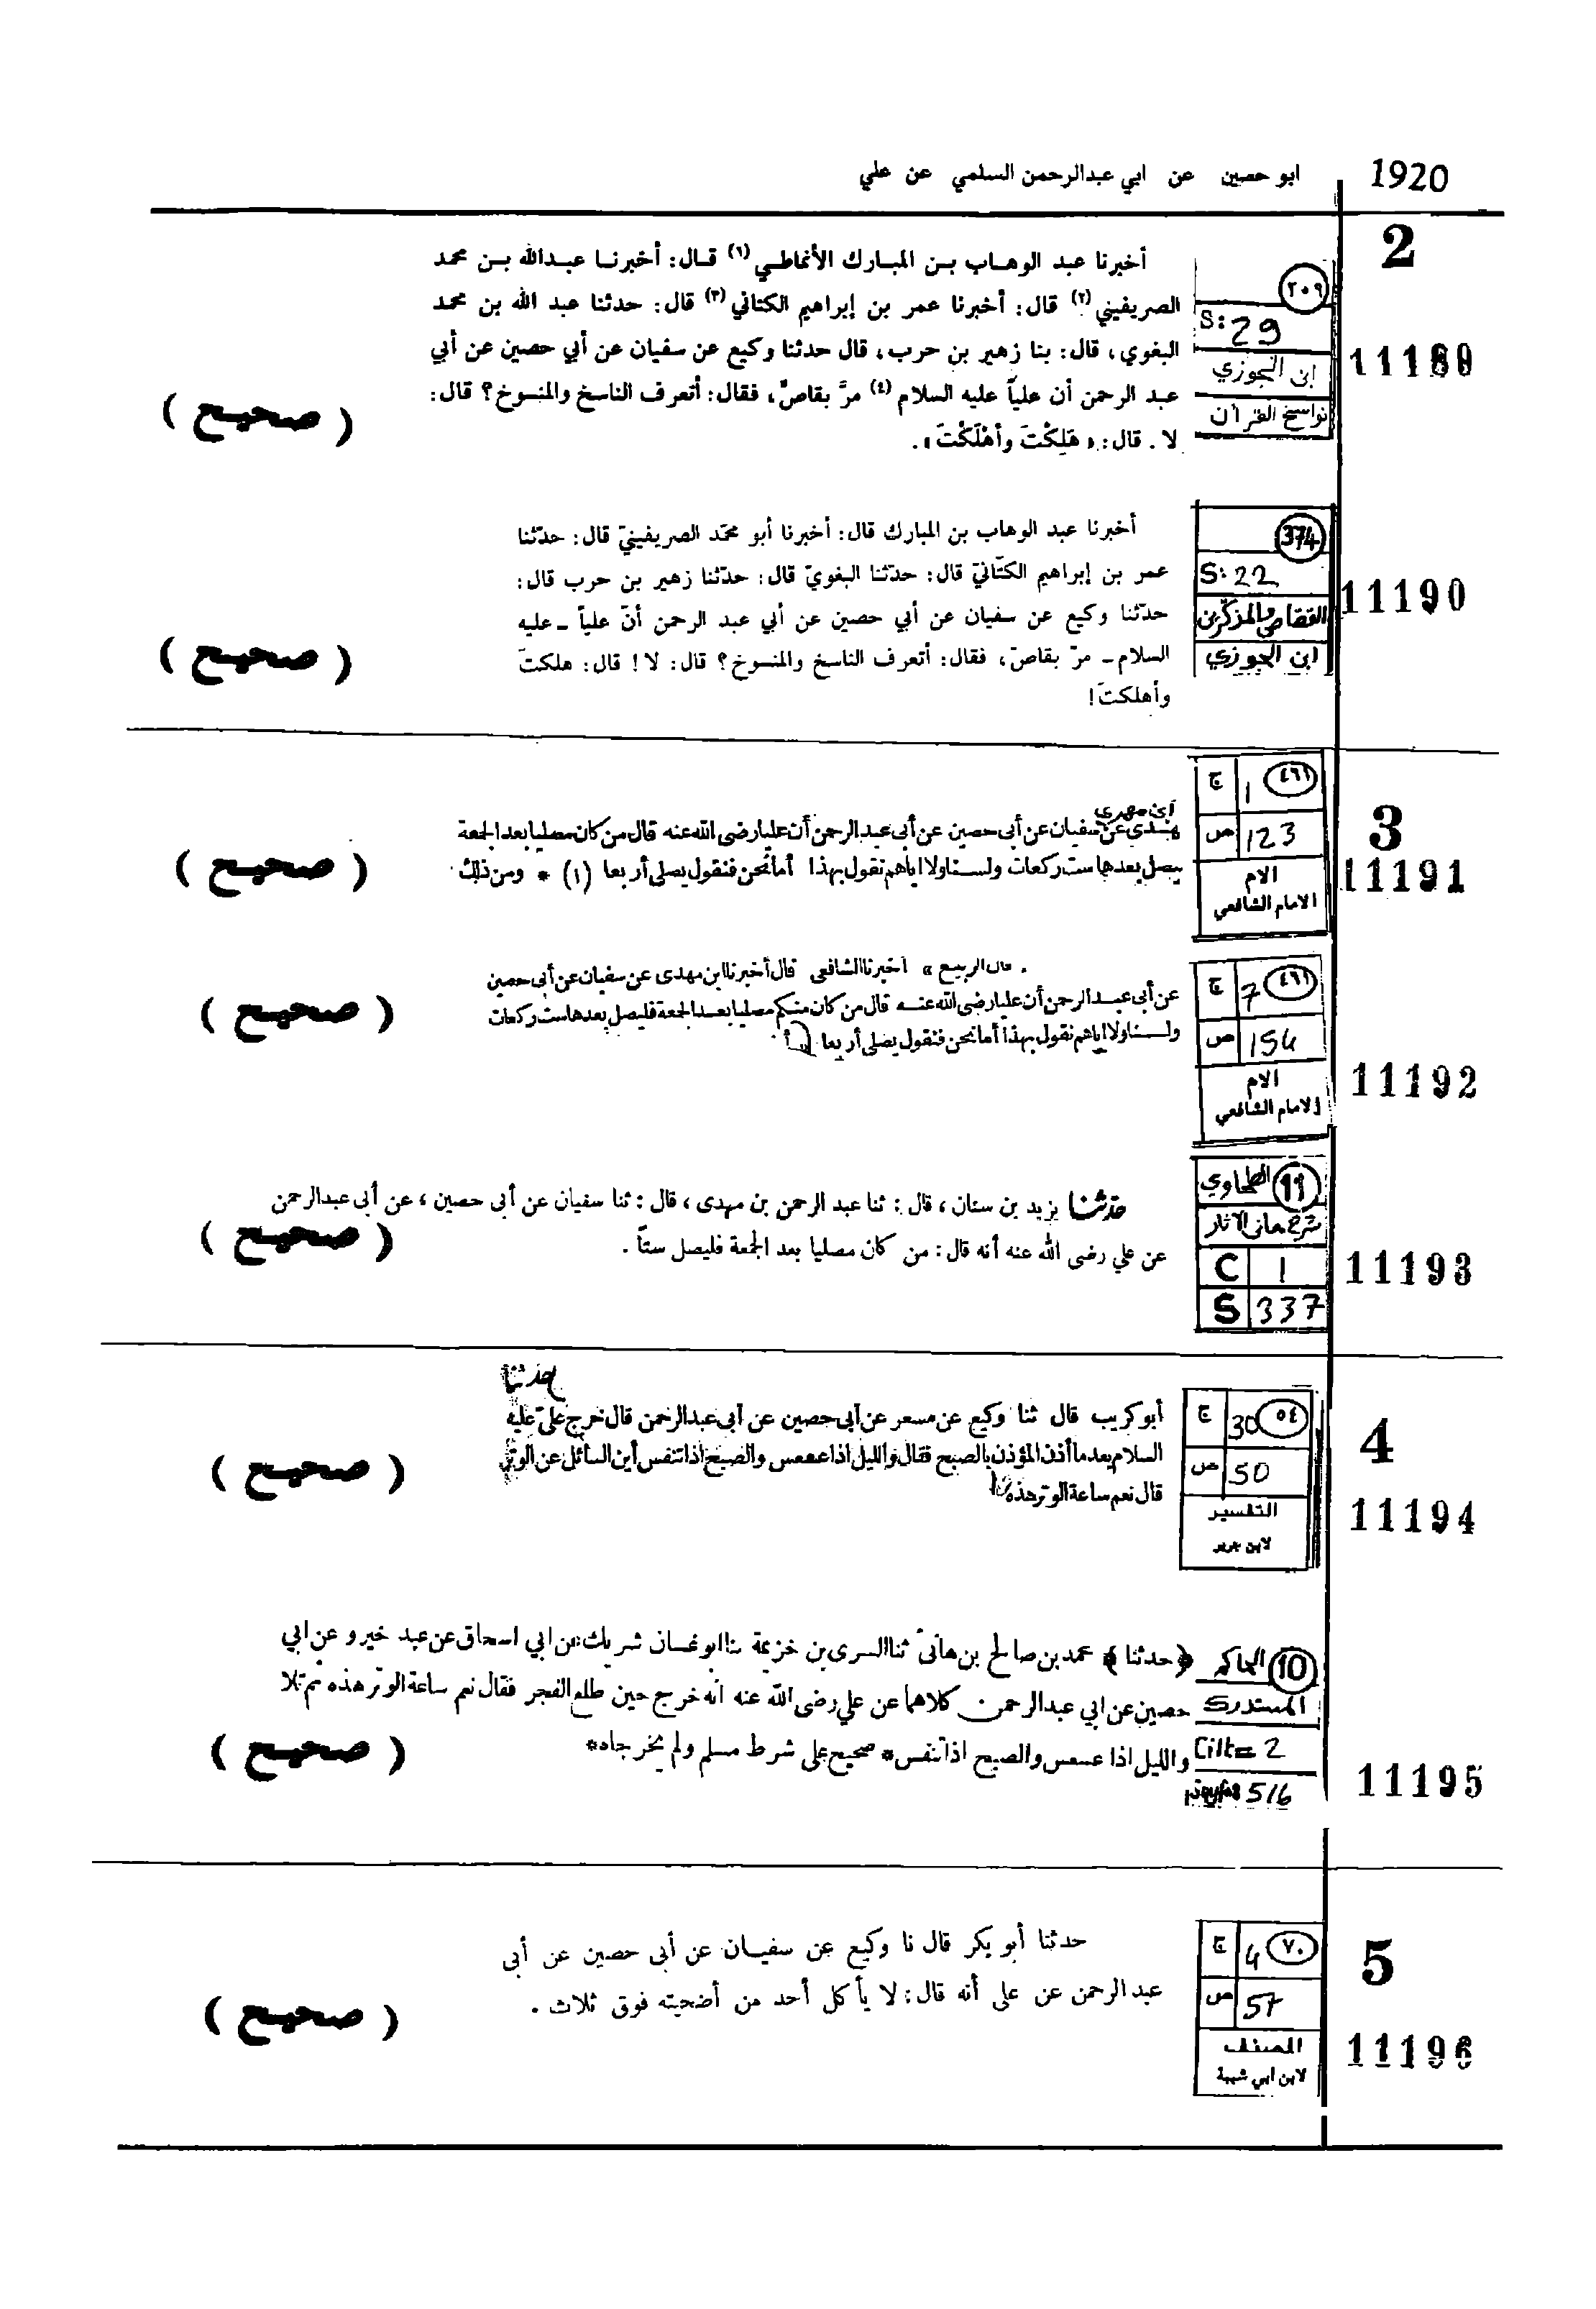 1920
ابو حصين عن ابي عبدالرحمن السلمي عن علي
2
٢٠٩
S: 29
ابن الجوزي
نواسخ القرآن
11189
أخبرنا عبد الوهاب بن المبارك الأنماطي (١) قال: أخبرنا عبدالله بن محمد
الصريفيني (٢) قال: أخبرنا عمر بن إبراهيم الكتاني (٣) قال: حدثنا عبد الله بن محمد
البغوي، قال: بنا زهير بن حرب، قال حدثنا وكيع عن سفيان عن أبي حصين عن أبي
عبد الرحمن أن علياً عليه السلام (٤) مرَّ بقاصٍّ، فقال: أتعرف الناسخ والمنسوخ؟ قال:
لا. قال: «هَلِكْتَ وأهْلَكْتَ».
( صحيح )
374
S: 22
القصاص والمذكرين
ابن الجوزي
11190
أخبرنا عبد الوهاب بن المبارك قال: أخبرنا أبو محمّد الصريفينيّ قال: حدّثنا
عمر بن إبراهيم الكتّانيّ قال: حدّثنا البغويّ قال: حدّثنا زهير بن حرب قال:
حدّثنا وكيع عن سفيان عن أبي حصين عن أبي عبد الرحمن أنّ علياً ـ عليه
السلام ـ مرّ بقاصّ، فقال: أتعرف الناسخ والمنسوخ؟ قال: لا! قال: هلكتَ
وأهلكتَ!
( صحيح )
3
ج 1 ٤٦١
ص 123
الام
الامام الشافعي
11191
ابن مهدي
مهدى عن سفيان عن أبى حصين عن أبى عبد الرحمن أن عليا رضى الله عنه قال من كان مصليا بعد الجمعة
فليصل بعدها ست ركعات ولسنا ولا اياهم نقول بهذا أما نحن فنقول يصلى أربعا (١) * ومن ذلك
( صحيح )
ج 7 ٤٦١
ص 154
الام
الامام الشافعي
11192
قال الربيع » أخبرنا الشافعى قال أخبرنا ابن مهدى عن سفيان عن أبى حصين
عن أبى عبد الرحمن أن عليا رضى الله عنه قال من كان منكم مصليا بعد الجمعة فليصل بعدها ست ركعات
ولسنا ولا اياهم نقول بهذا أما نحن فنقول يصلى أربعا
( صحيح )
11 الطحاوي
شرح معاني الآثار
C 1
S 337
11193
حدثنا يزيد بن سنان، قال: ثنا عبد الرحمن بن مهدى، قال: ثنا سفيان عن أبى حصين، عن أبى عبدالرحمن
عن علي رضى الله عنه أنه قال: من كان مصليا بعد الجمعة فليصل ستاً.
( صحيح )
4
ج 30 ٥٤
ص 50
التفسير
لابن جرير
11194
حدثنا
أبو كريب قال ثنا وكيع عن مسعر عن أبى حصين عن أبى عبد الرحمن قال خرج علىّ عليه
السلام بعد ما أذن المؤذن بالصبح فقال والليل اذا عسعس والصبح اذا تنفس أين السائل عن الوتر
قال نعم ساعة الوتر هذه
( صحيح )
10 الحاكم
المستدرك
Cilt= 2
Sayfa 516
11195
﴿حدثنا﴾ محمد بن صالح بن هانئ ثنا السرى بن خزيمة ثنا ابو غسان شريك عن ابي اسحاق عن عبد خير و عن ابي
حصين عن ابي عبدالرحمن كلاهما عن علي رضى الله عنه انه خرج حين طلع الفجر فقال نعم ساعة الوتر هذه ثم تلا
والليل اذا عسعس والصبح اذا تنفس* صحيح على شرط مسلم ولم يخرجاه*
( صحيح )
5
ج 4 ٧٠
ص 57
المصنف
لابن ابي شيبة
11196
حدثنا أبو بكر قال نا وكيع عن سفيان عن أبى حصين عن أبى
عبد الرحمن عن على أنه قال: لا يأكل أحد من أضحيته فوق ثلاث.
( صحيح )